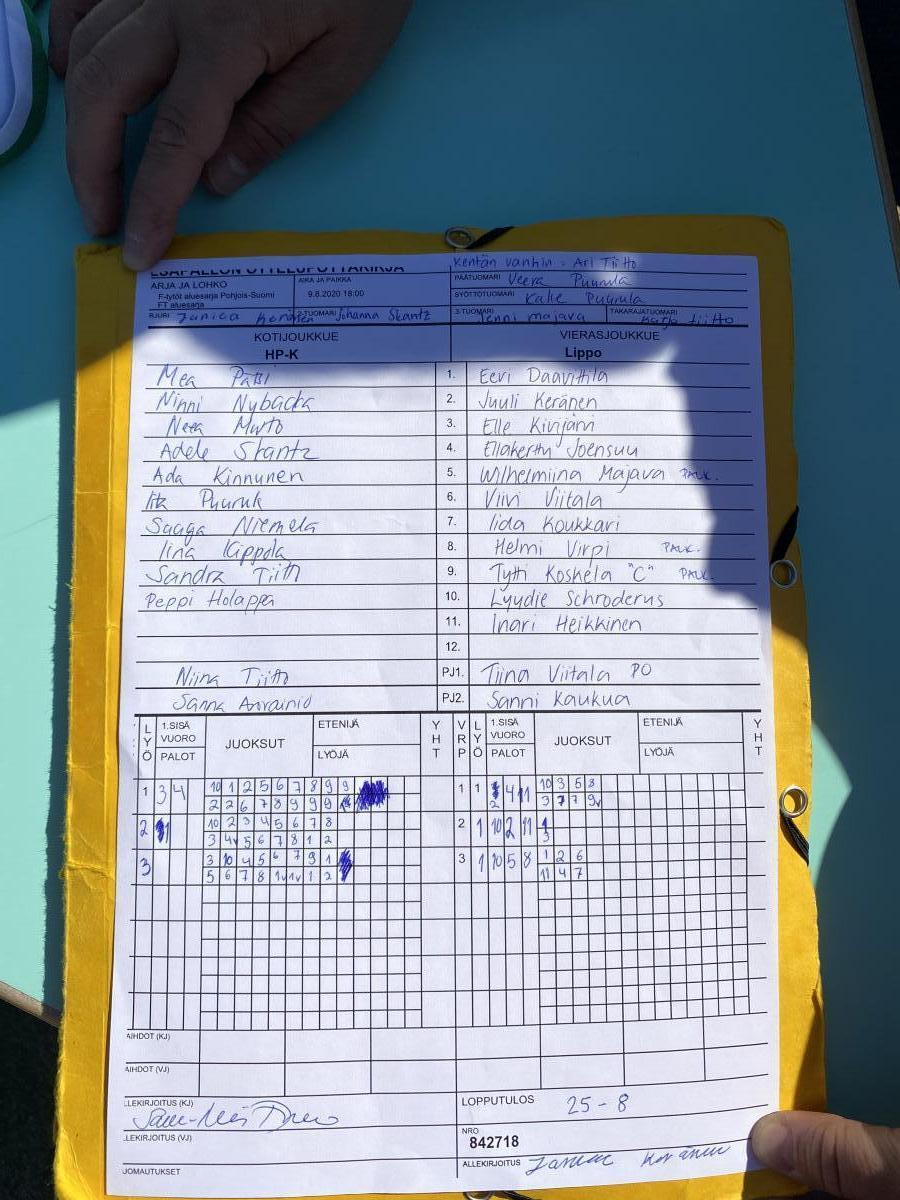 ESAPALLON OTTELUPÖYTÄKIRJA
Kentän vanhin: Ari Tiitto
ARJA JA LOHKO
F-tytöt aluesarja Pohjois-Suomi
FT aluesarja
AIKA JA PAIKKA
9.8.2020 18:00
PÄÄTUOMARI Veera Puurula
SYÖTTÖTUOMARI Kalle Puurula
RJURI Janica Keränen 2-TUOMARI Johanna Skantz 3-TUOMARI Jenni Majava TAKARAJATUOMARI Katja Tiitto
KOTIJOUKKUE VIERASJOUKKUE
HP-K Lippo
Mea Patsi 1. Eevi Daavittila
Ninni Nybacka 2. Juuli Keränen
Neea Murto 3. Elle
Adele Skantz 4. Ellakerttu Joensuu
Ada Kinnunen 5. Wilhelmiina Majava PALK.
6. Viivi Viitala
Saaga Niemelä 7. Iida Koukkari
Iina 8. Helmi Virpi PALK.
Sandra Tiitto 9. Tytti Koskela "C" PALK.
Peppi Holappa 10. Lyydie Schroderus
11. Inari Heikkinen
12.
Niina Tiitto PJ1. Tiina Viitala PO
Sanna PJ2. Sanni Kaukua
LYÖ 1.SISÄ VUORO PALOT JUOKSUT ETENIJÄ LYÖJÄ YHT VRP LYÖ 1.SISÄ VUORO PALOT JUOKSUT ETENIJÄ LYÖJÄ YHT
1 3 4 10 1 2 5 6 7 8 9 9 1 1 4 11 10 3 5 8
2 2 6 7 8 9 9 9 2 3 7 7 9v
2 10 2 3 4 5 6 7 8 2 1 10 2 11 1
3 4v 5 6 7 8 1 2 3
3 3 10 4 5 6 7 9 1 3 1 10 5 8 1 2 6
5 6 7 8 1v 1v 1 2 11 4 7
AIHDOT (KJ)
AIHDOT (VJ)
LLEKIRJOITUS (KJ)
LOPPUTULOS 25-8
LLEKIRJOITUS (VJ)
NRO
842718
UOMAUTUKSET
ALLEKIRJOITUS Janica Keränen